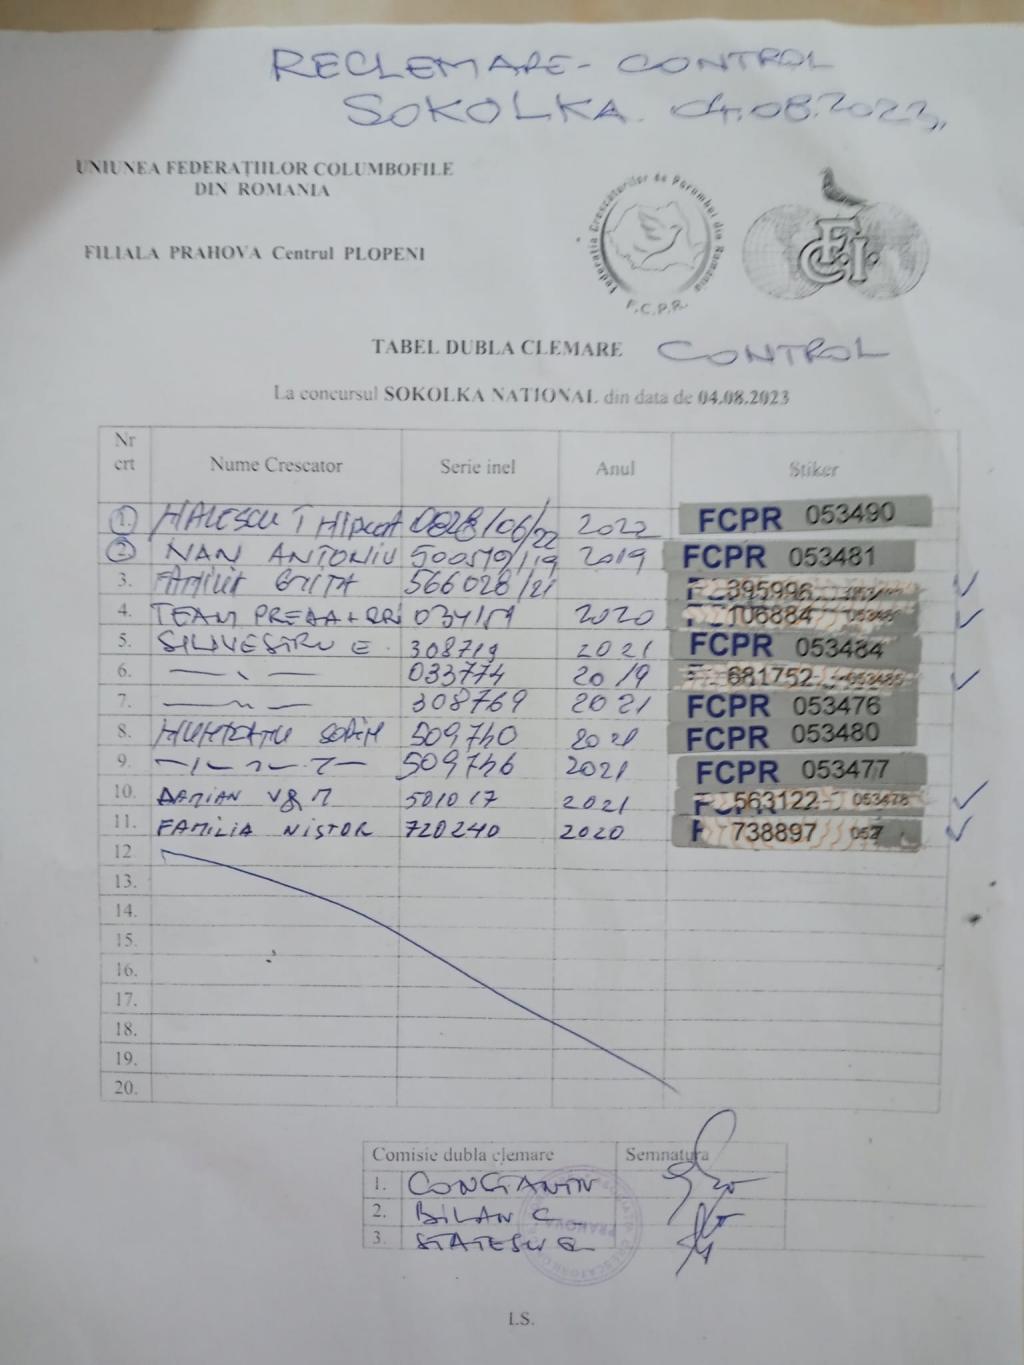 RECLEMARE - CONTROL
SOKOLKA 04.08.2023,
UNIUNEA FEDERAȚIILOR COLUMBOFILE
DIN ROMANIA
Federatia Crescatorilor de Porumbei din Romania
F.C.P.R.
F.C.I.
FILIALA PRAHOVA Centrul PLOPENI
TABEL DUBLA CLEMARE CONTROL
La concursul SOKOLKA NATIONAL din data de 04.08.2023
Nr crt Nume Crescator Serie inel Anul Stiker
1. 2022 FCPR 053490
2. NAN ANTONIU 2019 FCPR 053481
3. FAMILIA 566028/21 395996
4. TEAM PREDA+ 2020 106884
5. SILIVESTRU E. 308719 2021 FCPR 053484
6. 033774 2019 681752
7. 308769 2021 FCPR 053476
8. SORIN 509740 2021 FCPR 053480
9. 509746 2021 FCPR 053477
10. DAMIAN V & M 581017 2021 563122 053478
11. FAMILIA NISTOR 720240 2020 738897
12
13.
14.
15.
16.
17.
18.
19.
20.
Comisie dubla clemare Semnatura
1. CONSTANTIN
2. BILAN C
3. STATESCU
PRAHOVA
L.S.